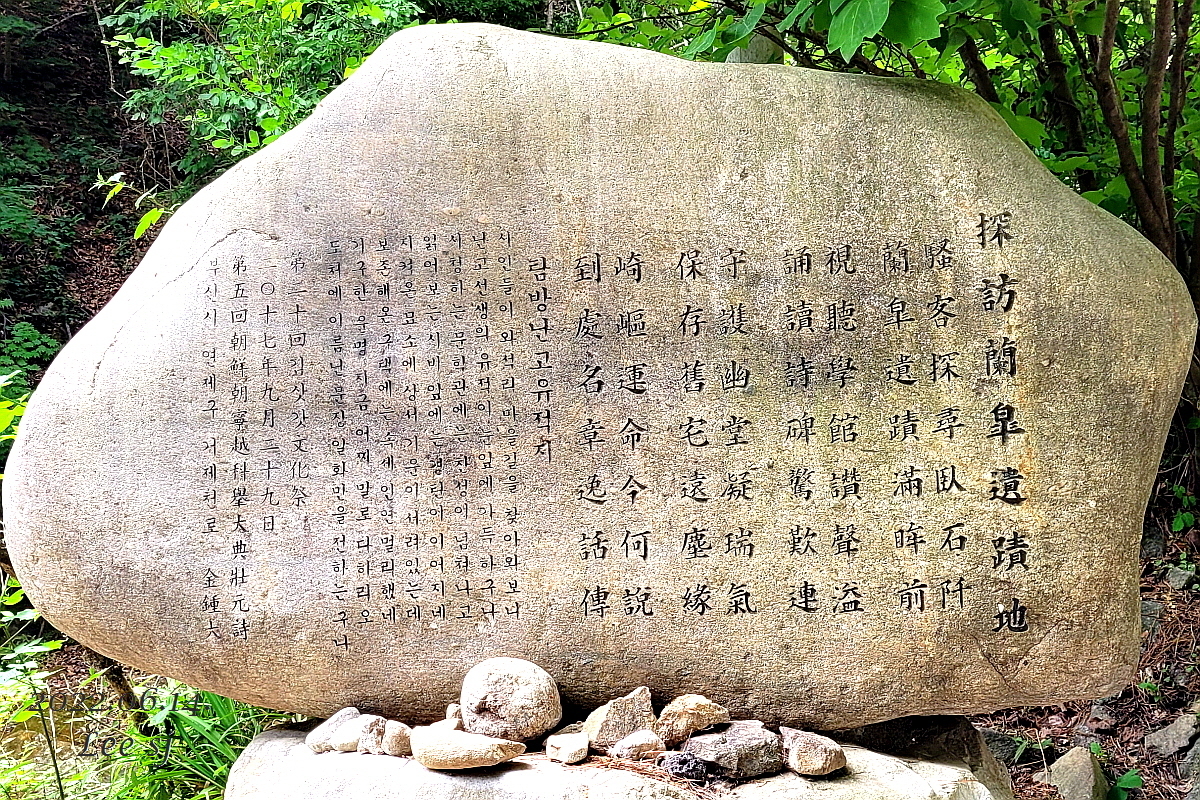 探訪蘭皐遺蹟地
騷客探尋臥石阡
蘭皐遺蹟滿眸前
視聽學館讚聲溢
誦讀詩碑驚歎連
守護幽堂凝瑞氣
保存舊宅遠塵緣
崎嶇運命今何說
到處名章逸話傳
탐방난고유적지
시인들이 와석리 마을길을 찾아와보니
난고선생의 유적이 눈앞에 가득하구나
시청하는 문학관에는 찬경이 넘쳐나고
읽어보는 시비 앞에는 경탄이 이어지네
지켜온 묘소에 상서기운이 서려있는데
보존해온 구택에는 속세인연 멀리했네
기구한 운명 지금 어찌 말로 다하리오
도처에 이름난 문장 일화만을 전하는구나
第二十回김삿갓文化祭
二〇十七年九月二十九日
第五回朝鮮朝寧越科擧大典壯元詩
부산시 연제구 거제천로 金鍾大
Lee